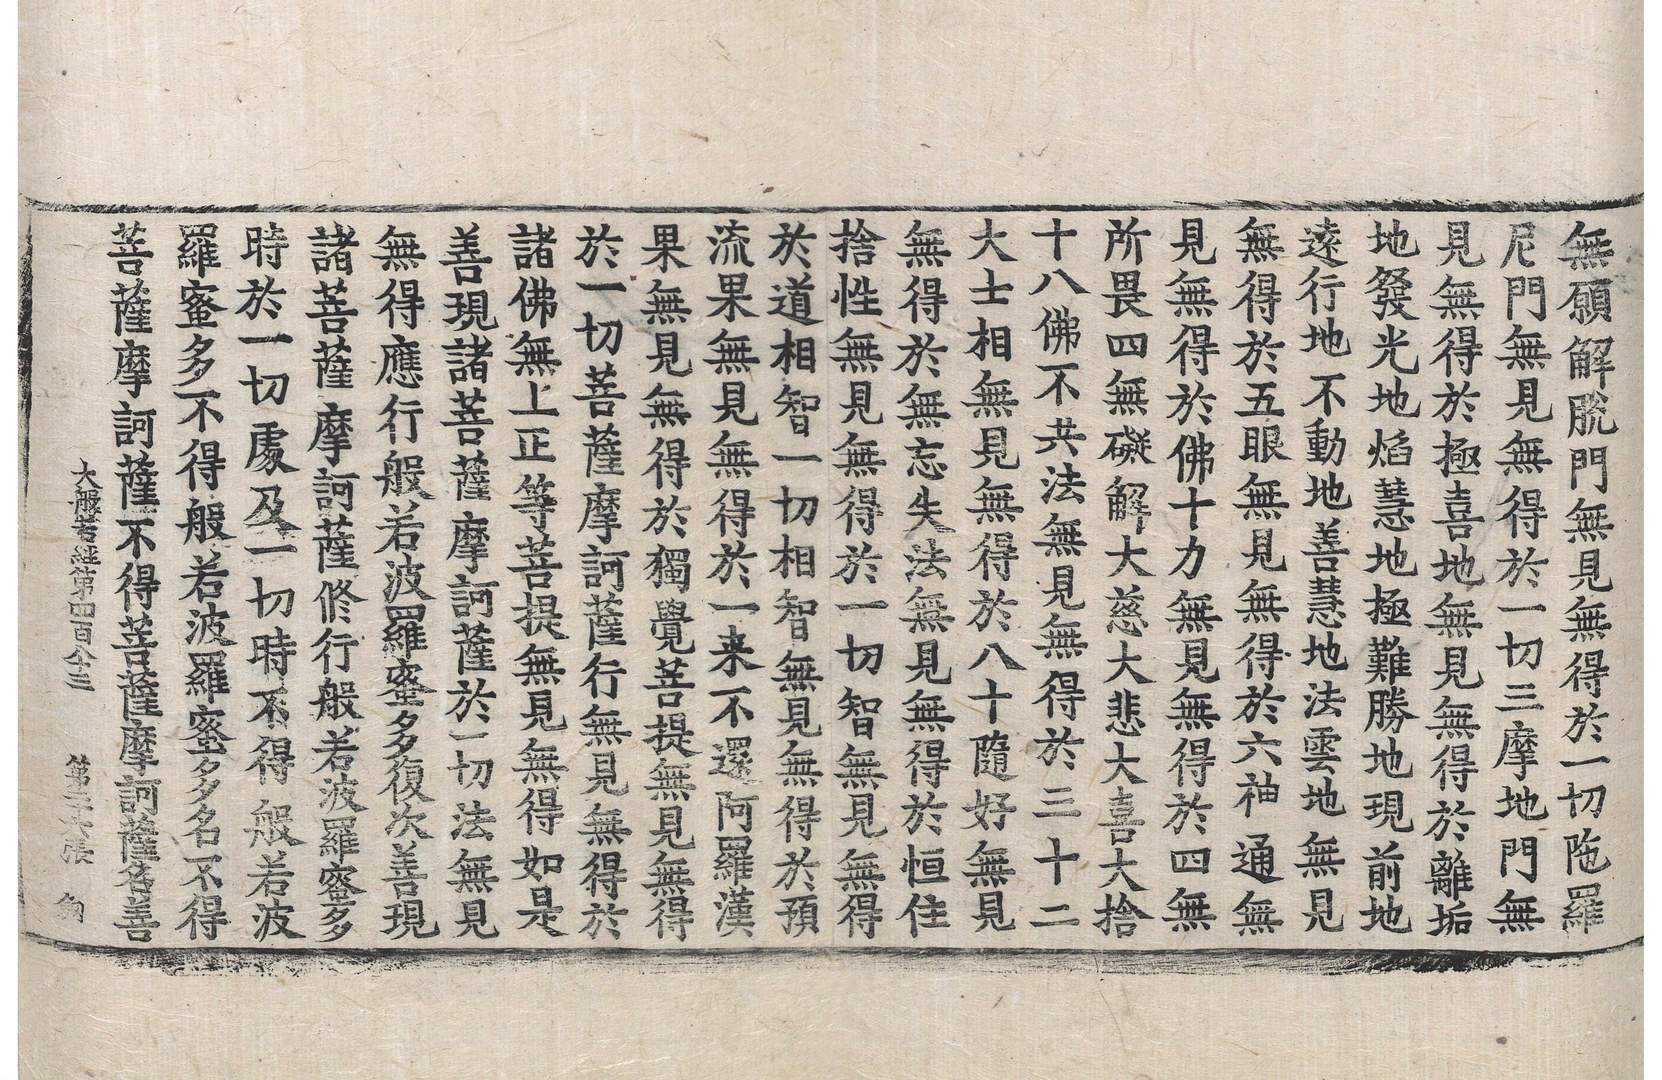 無願解脫門無見無得於一切陁羅
尼門無見無得於一切三摩地門無
見無得於極喜地無見無得於離垢
地發光地焰慧地極難勝地現前地
遠行地不動地善慧地法雲地無見
無得於五眼無見無得於六神通無
見無得於佛十力無見無得於四無
所畏四無礙解大慈大悲大喜大捨
十八佛不共法無見無得於三十二
大士相無見無得於八十隨好無見
無得於無忘失法無見無得於恒住
捨性無見無得於一切智無見無得
於道相智一切相智無見無得於預
流果無見無得於一来不還阿羅漢
果無見無得於獨覺菩提無見無得
於一切菩薩摩訶薩行無見無得於
諸佛無上正等菩提無見無得如是
善現諸菩薩摩訶薩於一切法無見
無得應行般若波羅蜜多復次善現
諸菩薩摩訶薩修行般若波羅蜜多
時於一切處及一切時不得般若波
羅蜜多不得般若波羅蜜多名不得
菩薩摩訶薩不得菩薩摩訶薩名善
大般若經第四百八十三 第 張